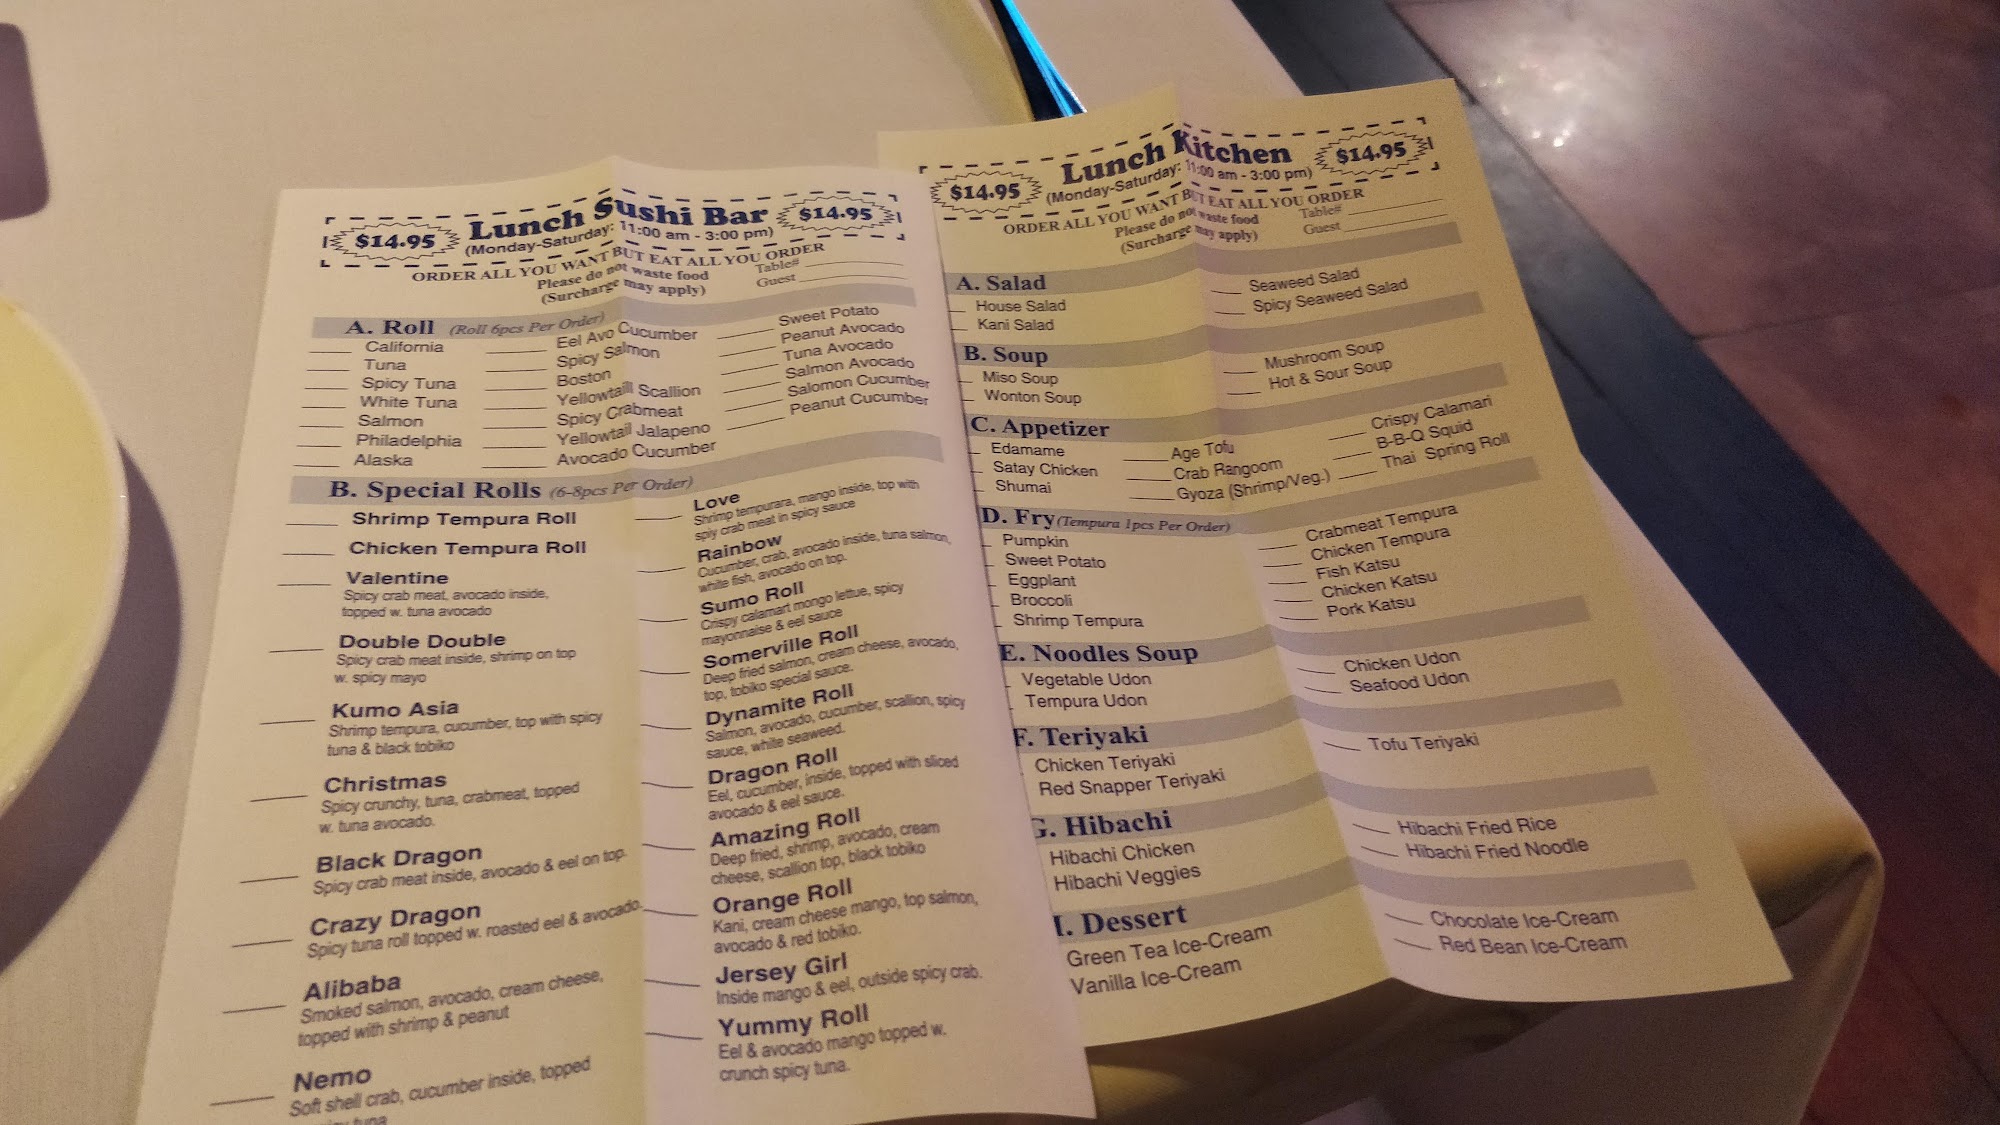 Lunch Sushi Bar
$14.95
$14.95
(Monday-Saturday: 11:00 am - 3:00 pm)
ORDER ALL YOU WANT BUT EAT ALL YOU ORDER
Please do not waste food
(Surcharge may apply)
Table#
Guest
A. Roll (Roll 6pcs Per Order)
California
Tuna
Spicy Tuna
White Tuna
Salmon
Philadelphia
Alaska
Eel Avo Cucumber
Spicy Salmon
Boston
Yellowtaill Scallion
Spicy Crabmeat
Yellowtail Jalapeno
Avocado Cucumber
Sweet Potato
Peanut Avocado
Tuna Avocado
Salmon Avocado
Salomon Cucumber
Peanut Cucumber
B. Special Rolls (6-8pcs Per Order)
Shrimp Tempura Roll
Chicken Tempura Roll
Valentine
Spicy crab meat, avocado inside,
topped w. tuna avocado
Double Double
Spicy crab meat inside, shrimp on top
w. spicy mayo
Kumo Asia
Shrimp tempura, cucumber, top with spicy
tuna & black tobiko
Christmas
Spicy crunchy, tuna, crabmeat, topped
w. tuna avocado.
Black Dragon
Spicy crab meat inside, avocado & eel on top.
Crazy Dragon
Spicy tuna roll topped w. roasted eel & avocado.
Alibaba
Smoked salmon, avocado, cream cheese,
topped with shrimp & peanut
Nemo
Soft shell crab, cucumber inside, topped
tuna
Love
Shrimp tempurara, mango inside, top with
spiy crab meat in spicy sauce
Rainbow
Cucumber, crab, avocado inside, tuna salmon,
white fish, avocado on top.
Sumo Roll
Crispy calamart mongo lettue, spicy
mayonnaise & eel sauce
Somerville Roll
Deep fried salmon, cream cheese, avocado,
top, tobiko special sauce.
Dynamite Roll
Salmon, avocado, cucumber, scallion, spicy
sauce, white seaweed.
Dragon Roll
Eel, cucumber, inside, topped with sliced
avocado & eel sauce.
Amazing Roll
Deep fried, shrimp, avocado, cream
cheese, scallion top, black tobiko
Orange Roll
Kani, cream cheese mango, top salmon,
avocado & red tobiko.
Jersey Girl
Inside mango & eel, outside spicy crab.
Yummy Roll
Eel & avocado mango topped w.
crunch spicy tuna.
Lunch Kitchen
$14.95
$14.95
(Monday-Saturday: 11:00 am - 3:00 pm)
ORDER ALL YOU WANT BUT EAT ALL YOU ORDER
Please do not waste food
(Surcharge may apply)
Table#
Guest
A. Salad
House Salad
Kani Salad
Seaweed Salad
Spicy Seaweed Salad
B. Soup
Miso Soup
Wonton Soup
Mushroom Soup
Hot & Sour Soup
C. Appetizer
Edamame
Satay Chicken
Shumai
Age Tofu
Crab Rangoom
Gyoza (Shrimp/Veg.)
Crispy Calamari
B-B-Q Squid
Thai Spring Roll
D. Fry (Tempura 1pcs Per Order)
Pumpkin
Sweet Potato
Eggplant
Broccoli
Shrimp Tempura
Crabmeat Tempura
Chicken Tempura
Fish Katsu
Chicken Katsu
Pork Katsu
E. Noodles Soup
Vegetable Udon
Tempura Udon
Chicken Udon
Seafood Udon
F. Teriyaki
Chicken Teriyaki
Red Snapper Teriyaki
Tofu Teriyaki
G. Hibachi
Hibachi Chicken
Hibachi Veggies
Hibachi Fried Rice
Hibachi Fried Noodle
Dessert
Green Tea Ice-Cream
Vanilla Ice-Cream
Chocolate Ice-Cream
Red Bean Ice-Cream